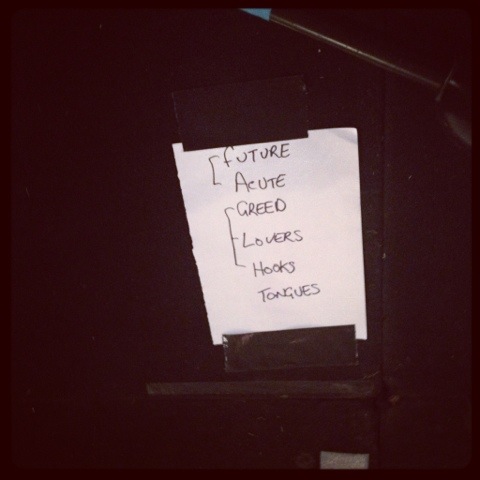 FUTURE
ACUTE
GREED
LOVERS
HOOKS
TONGUES